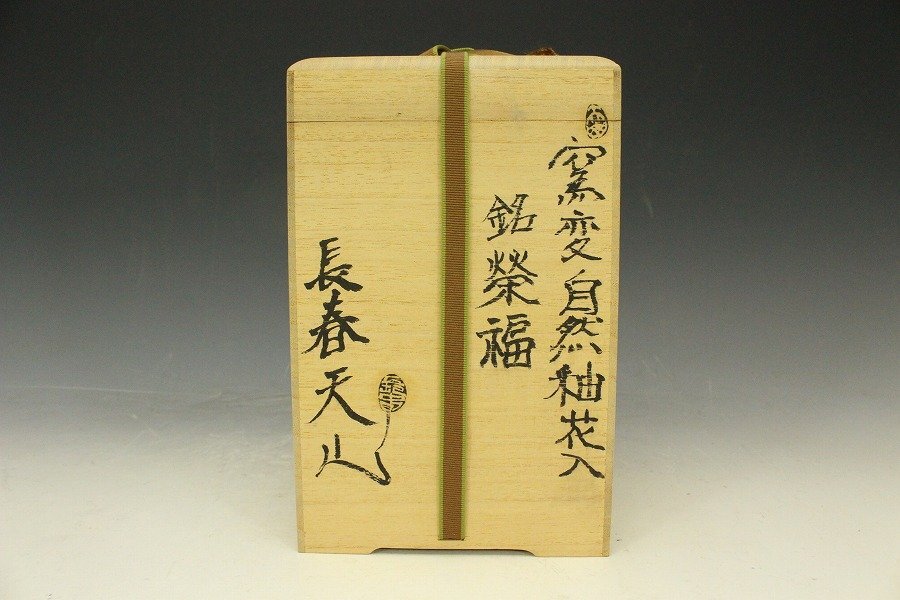 窯変自然釉花入
銘榮福
長春天山